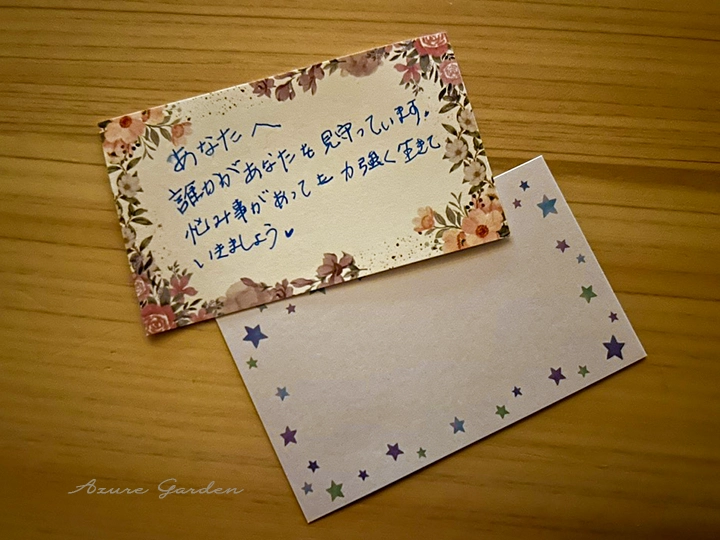 あなたへ
誰かがあなたを見守っています。
悩み事があっても力強く生きて
いきましょう♥
Azure Garden